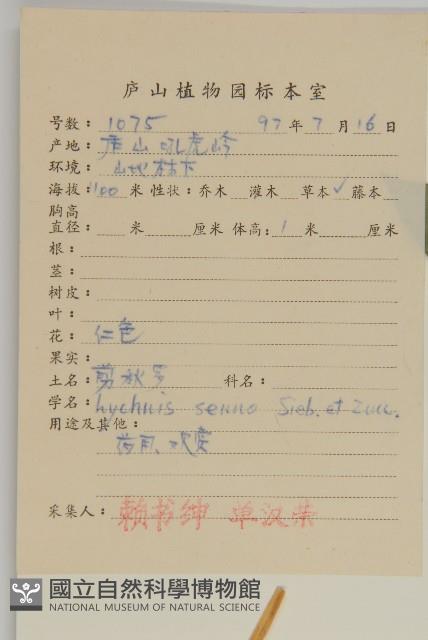 庐山植物园标本室
号数: 1075 97年7月16日
产地: 庐山吼虎岭
环境: 山地林下
海拔: 100米 性状: 乔木 灌木 草本✓ 藤本
胸高
直径: 米 厘米 体高: 1 米 厘米
根:
茎:
树皮:
叶:
花: 仁色
果实:
土名: 剪秋罗 科名:
学名: Lychnis senno Sieb. et Zucc.
用途及其他:
药用、观赏
采集人: 赖书绅 单汉荣
國立自然科學博物館
NATIONAL MUSEUM OF NATURAL SCIENCE